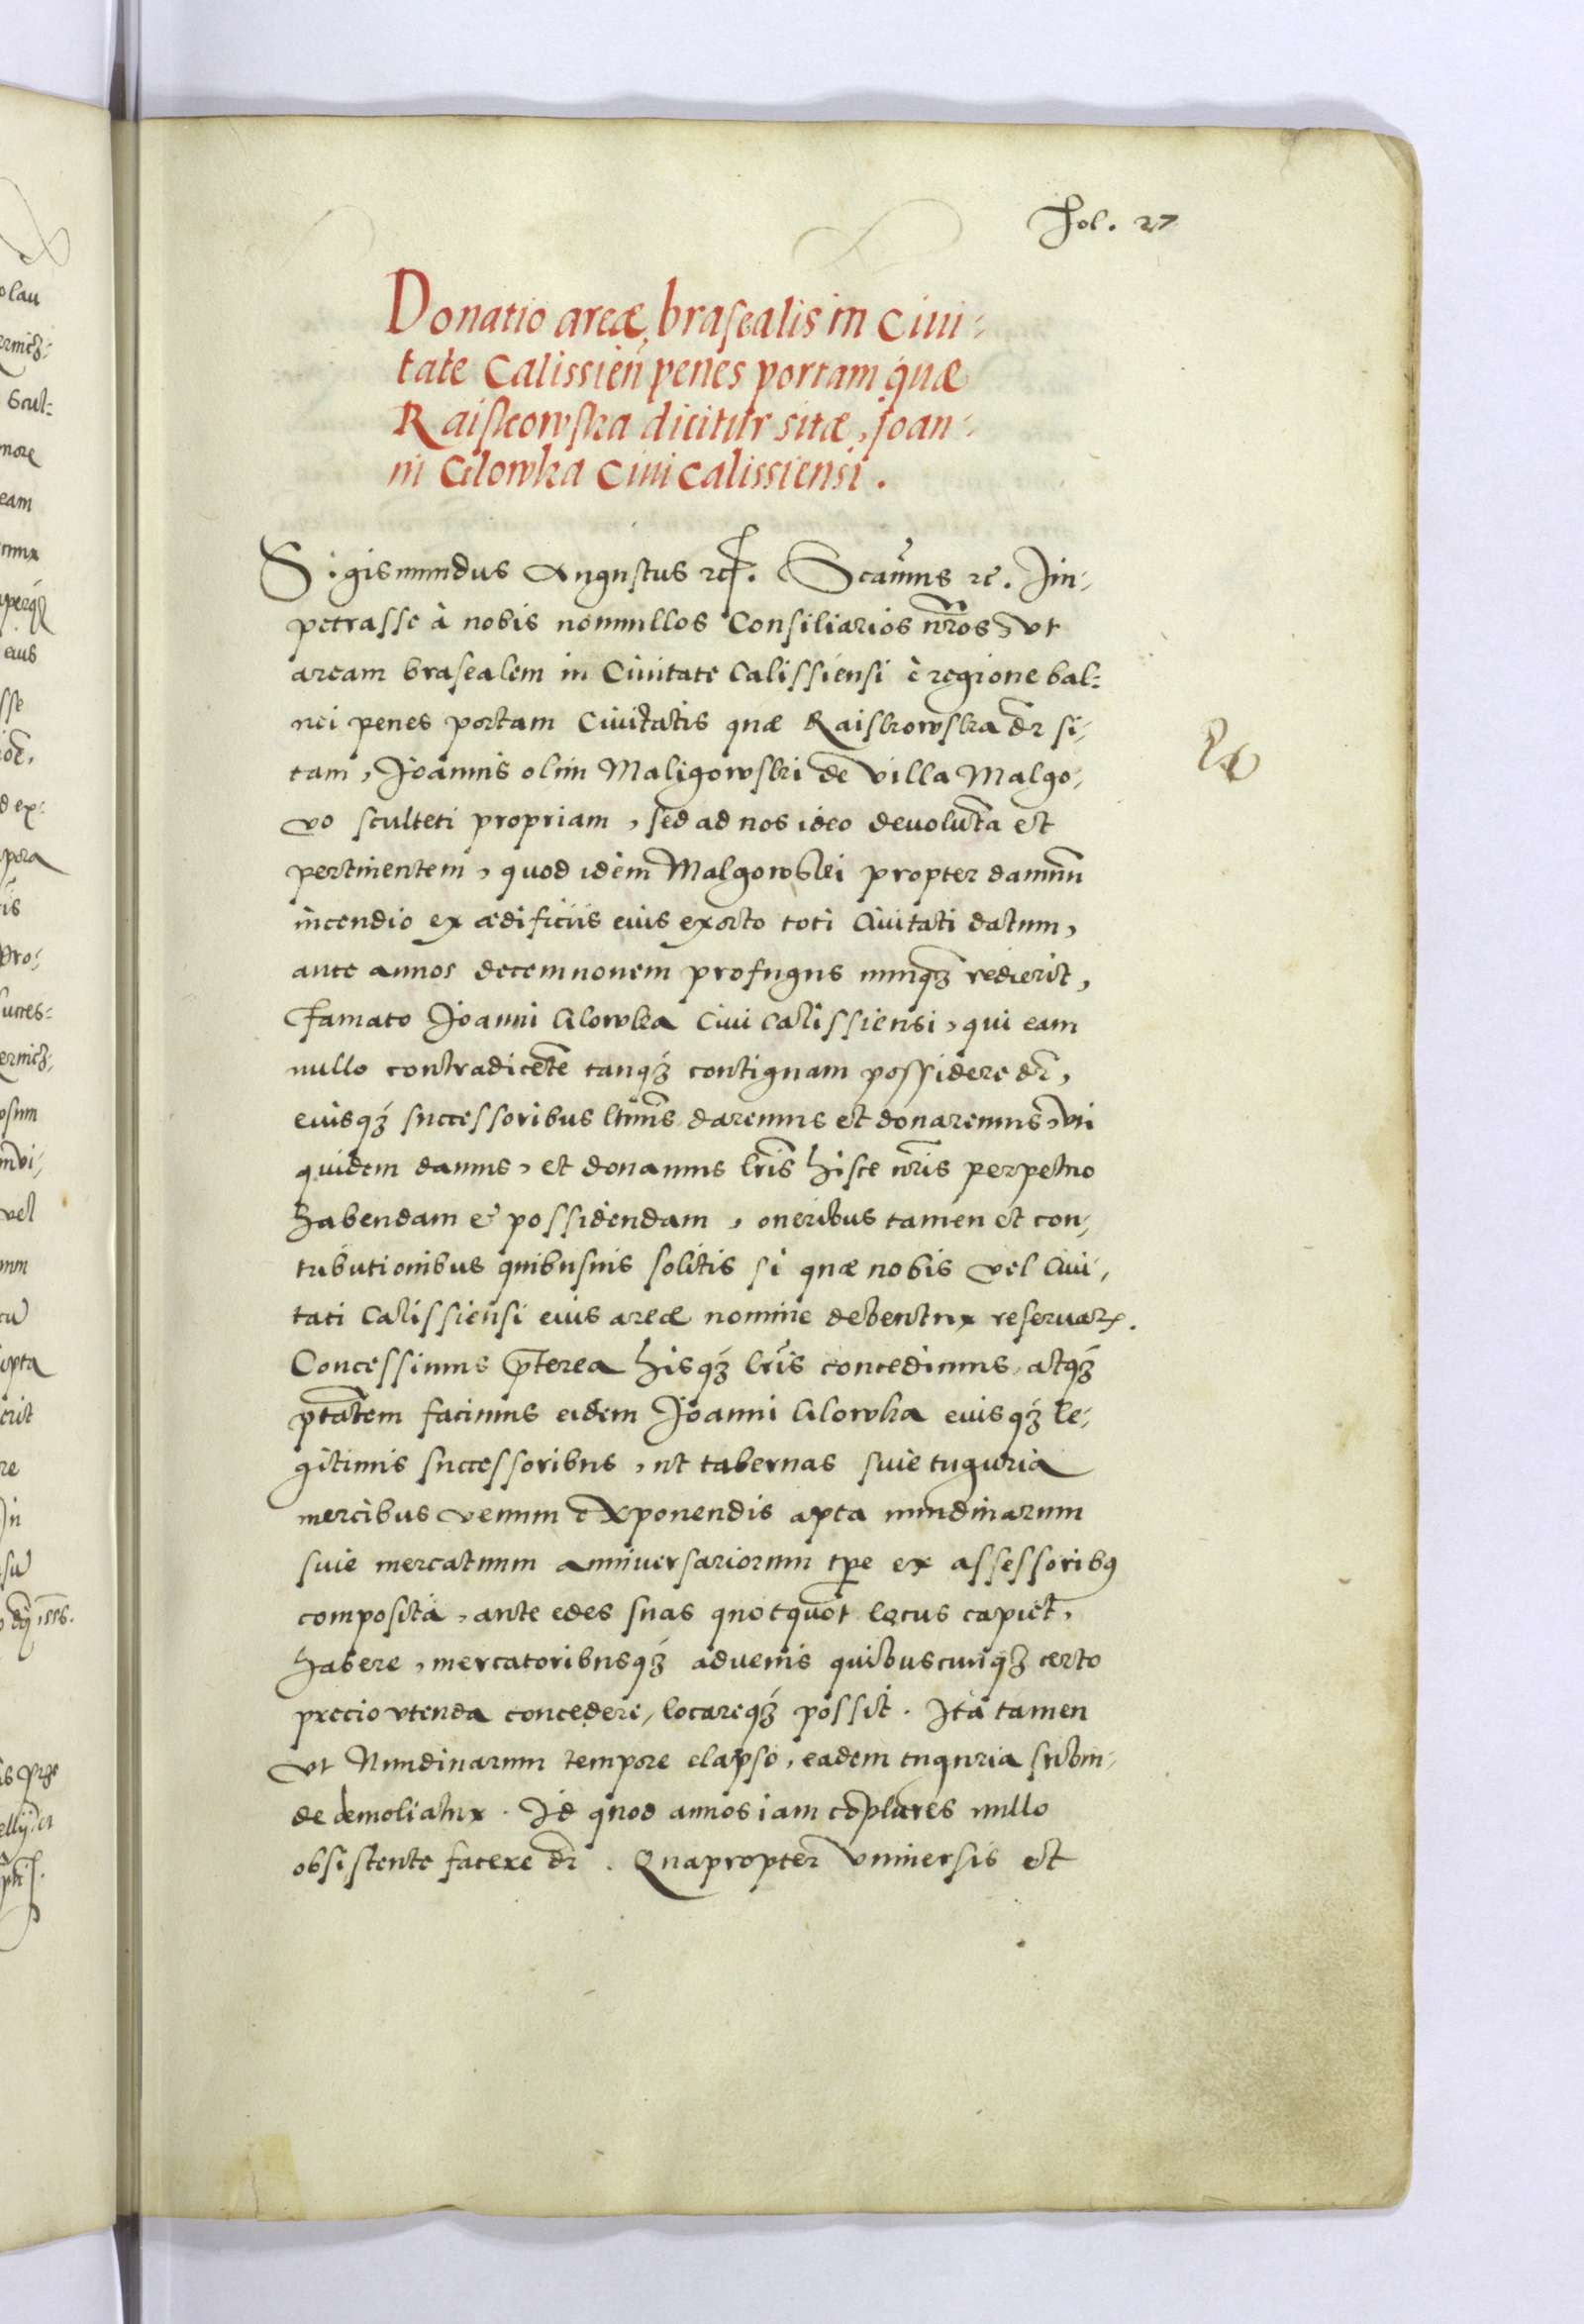 Fol. 27
Donatio areæ brasealis in Ciui-
tate Calissien̄ penes portam quæ
Raiskowska dicitur sitæ, Joan-
ni Glowka Ciui Calissiensi.
Sigismundus Augustus ꝛc̄. Scaūms ꝛc. Im-
petrasse à nobis nonnullos Consiliarios nr̄os, vt
aream brasealem in Ciuitate Calissiensi è regione bal-
nei penes portam Ciuitatis quæ Raiskowska dr̄ si-
tam, Joannis olim Maligowski de villa Malgo-
vo sculteti propriam, sed ad nos ideo deuolutā et
pertinentem, quod idem Malgowski propter damnū
incendio ex ædificiis eius exorto toti Ciuitati datum,
ante annos decemnouem profugus nunqꝫ redierit,
famato Joanni Glowka Ciui Calissiensi, qui eam
nullo contradicēte tanqꝫ contiguam possidere dr̄,
eiusqꝫ successoribus ltimis daremus et donaremus, vti
quidem damus, et donamus lr̄is hisce nr̄is perpetuo
habendam & possidendam, oneribus tamen et con-
tributionibus quibusuis solitis si quæ nobis vel Ciui-
tati Calissiensi eius areæ nomine debentur reseruatꝭ.
Concessimus p̄terea hisqꝫ lr̄is concedimus, atqꝫ
ptātem facimus eidem Joanni Glowka eiusqꝫ le-
gitimis successoribus, ut tabernas siue tuguria
mercibus venum exponendis apta nundinarum
siue mercatuum anniuersariorum tp̄e ex assessoribꝰ
composita, ante edes suas quotquot locus capiet,
habere, mercatoribusqꝫ aduenis quibuscunqꝫ certo
precio vtenda concedere, locareqꝫ possit. Ita tamen
vt Nundinarum tempore elapso, eadem tuguria subin-
de demoliatur. Id quod annos iam cōplures nullo
obsistente facere dr̄. Quapropter vniuersis et